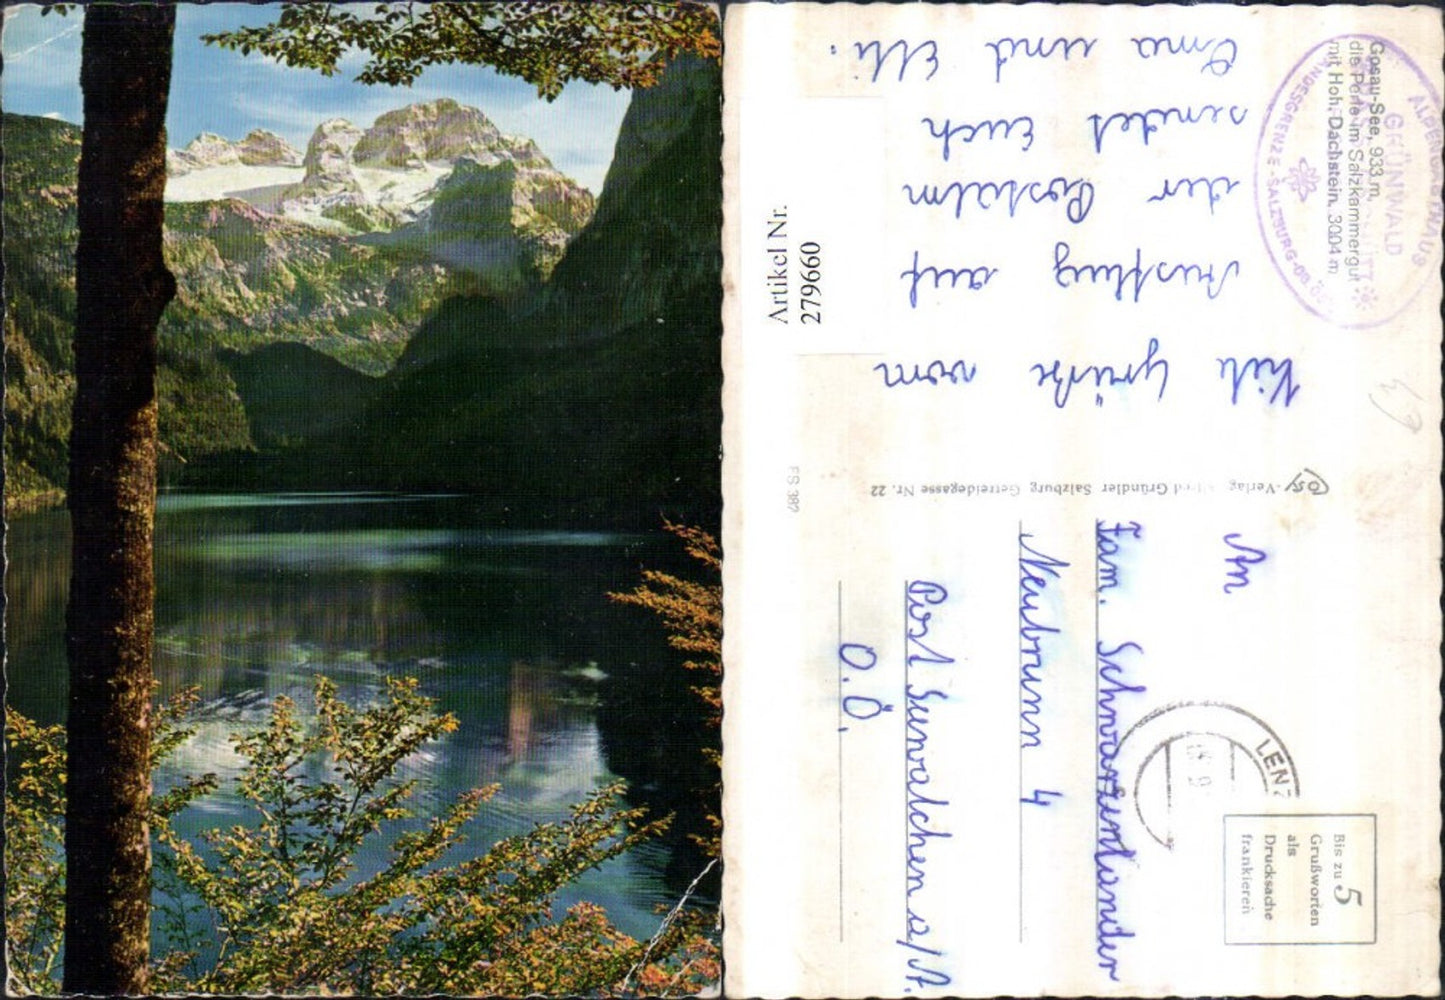 Gosau-See, 933 m,
die Perle im Salzkammergut
mit Hoh. Dachstein, 3004 m
GRÜNWALD
LANDESGRENZE-SALZBURG-OB.ÖST.
Viele Grüße vom
Ausflug auf
der Postalm
sendet Euch
Oma und Elli.
Artikel Nr.
279660
-Verlag Alfred Gründler Salzburg Getreidegasse Nr. 22
FS 382
An
Fam. Schwarzenlander
Neubrunn 4
Post Seewalchen a/A.
O.Ö.
LENZ
Bis zu 5
Grußworten
als
Drucksache
frankieren